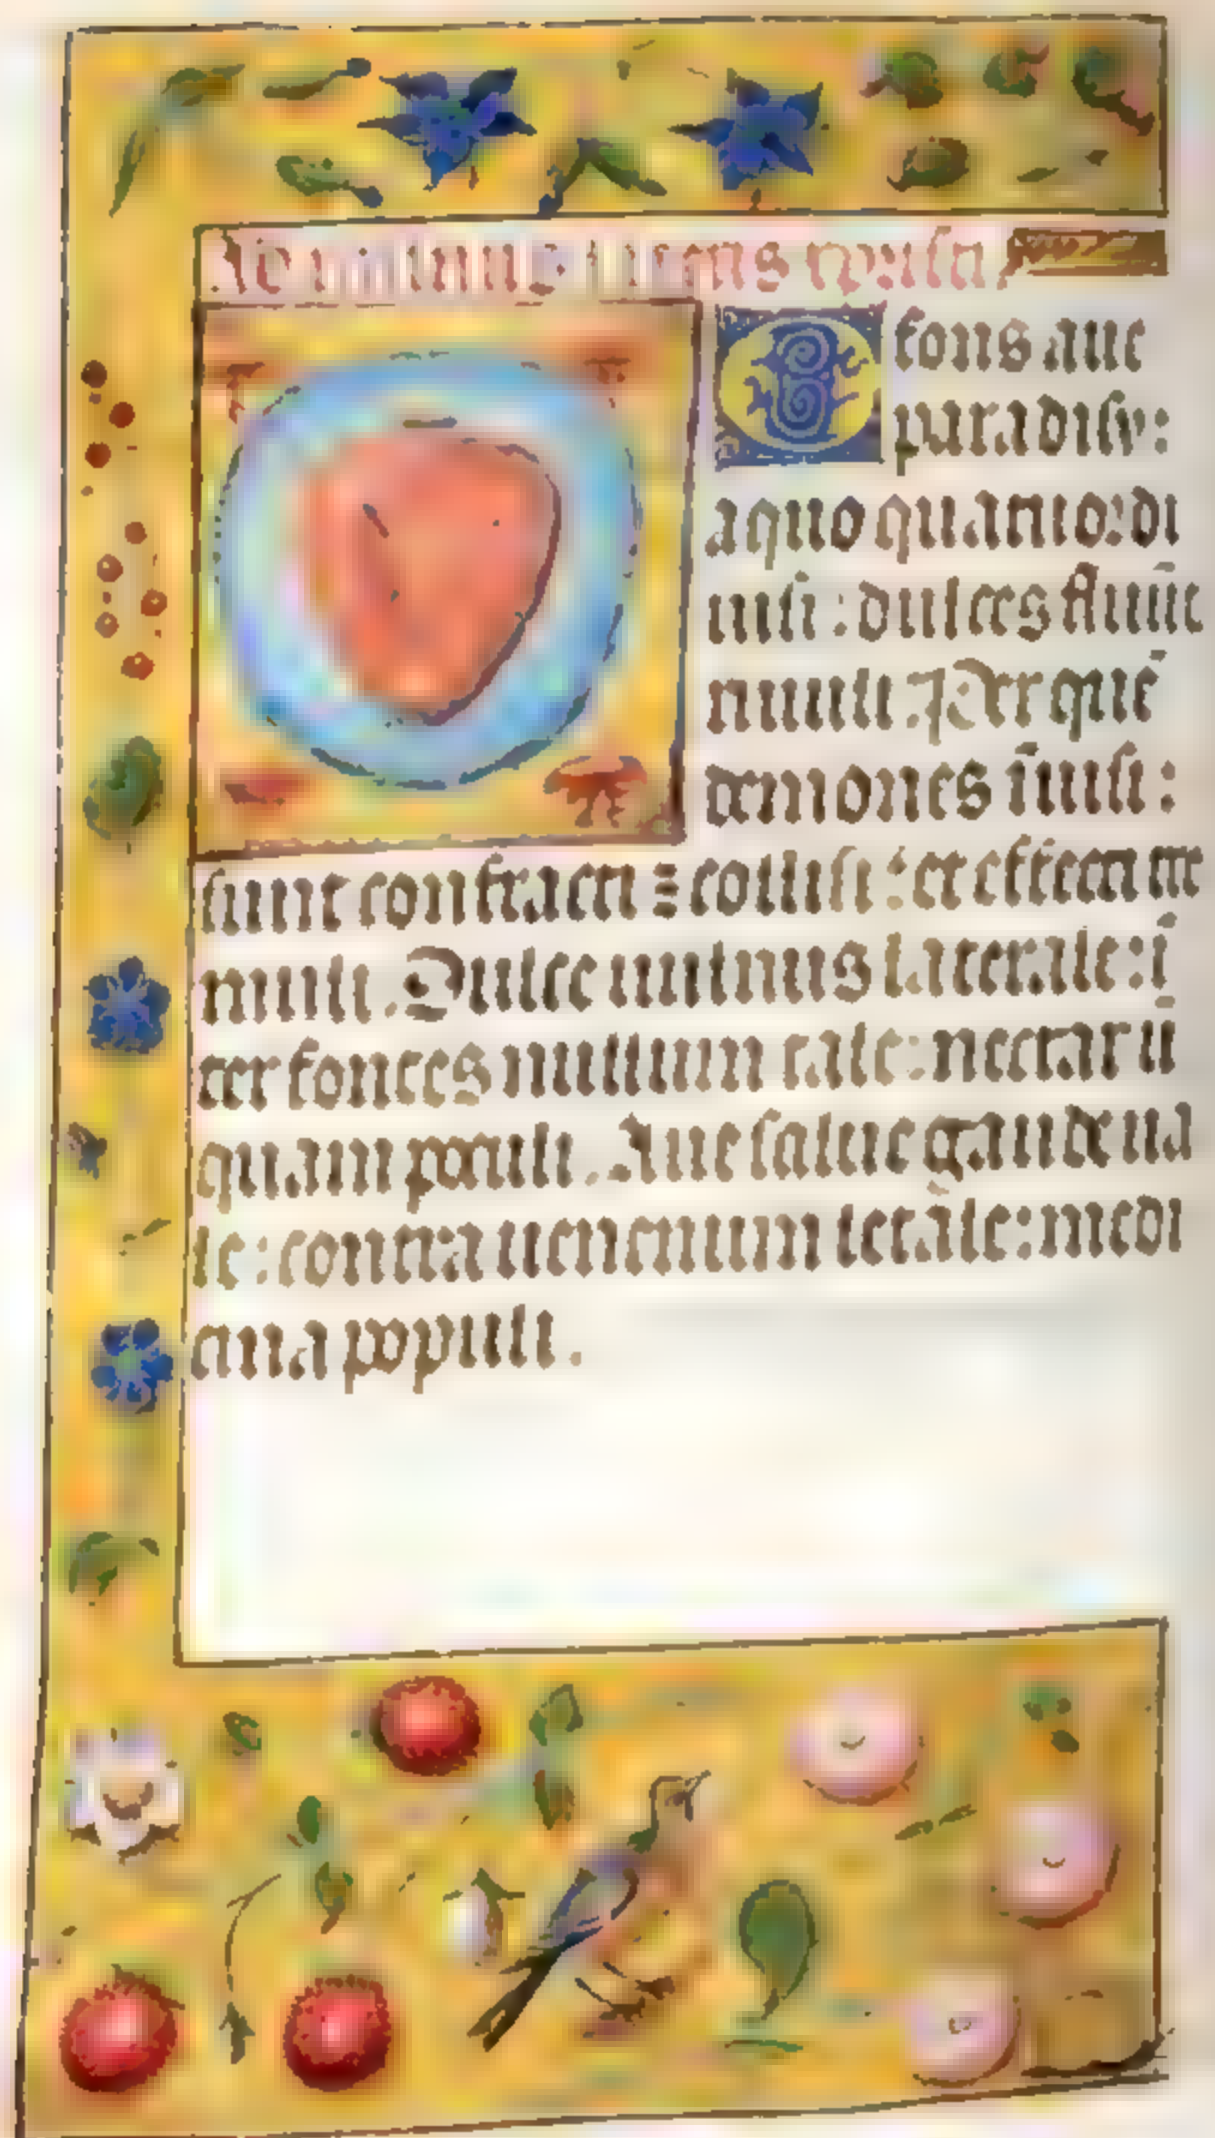 Ad vulnus lateris xpristi.
O fons aue
paradisy:
a quo quatuor di
uisi: dulces fluūt
riuuli. Per quē
demones īuisi:
sunt confracti z collisi: et effecti me
riuuli. Dulce uulnus laterale: ī
ter fontes nullum tale: nectar ū
quam poculi. Aue salue gaude ua
le: contra uenenum letale: medi
cina populi.